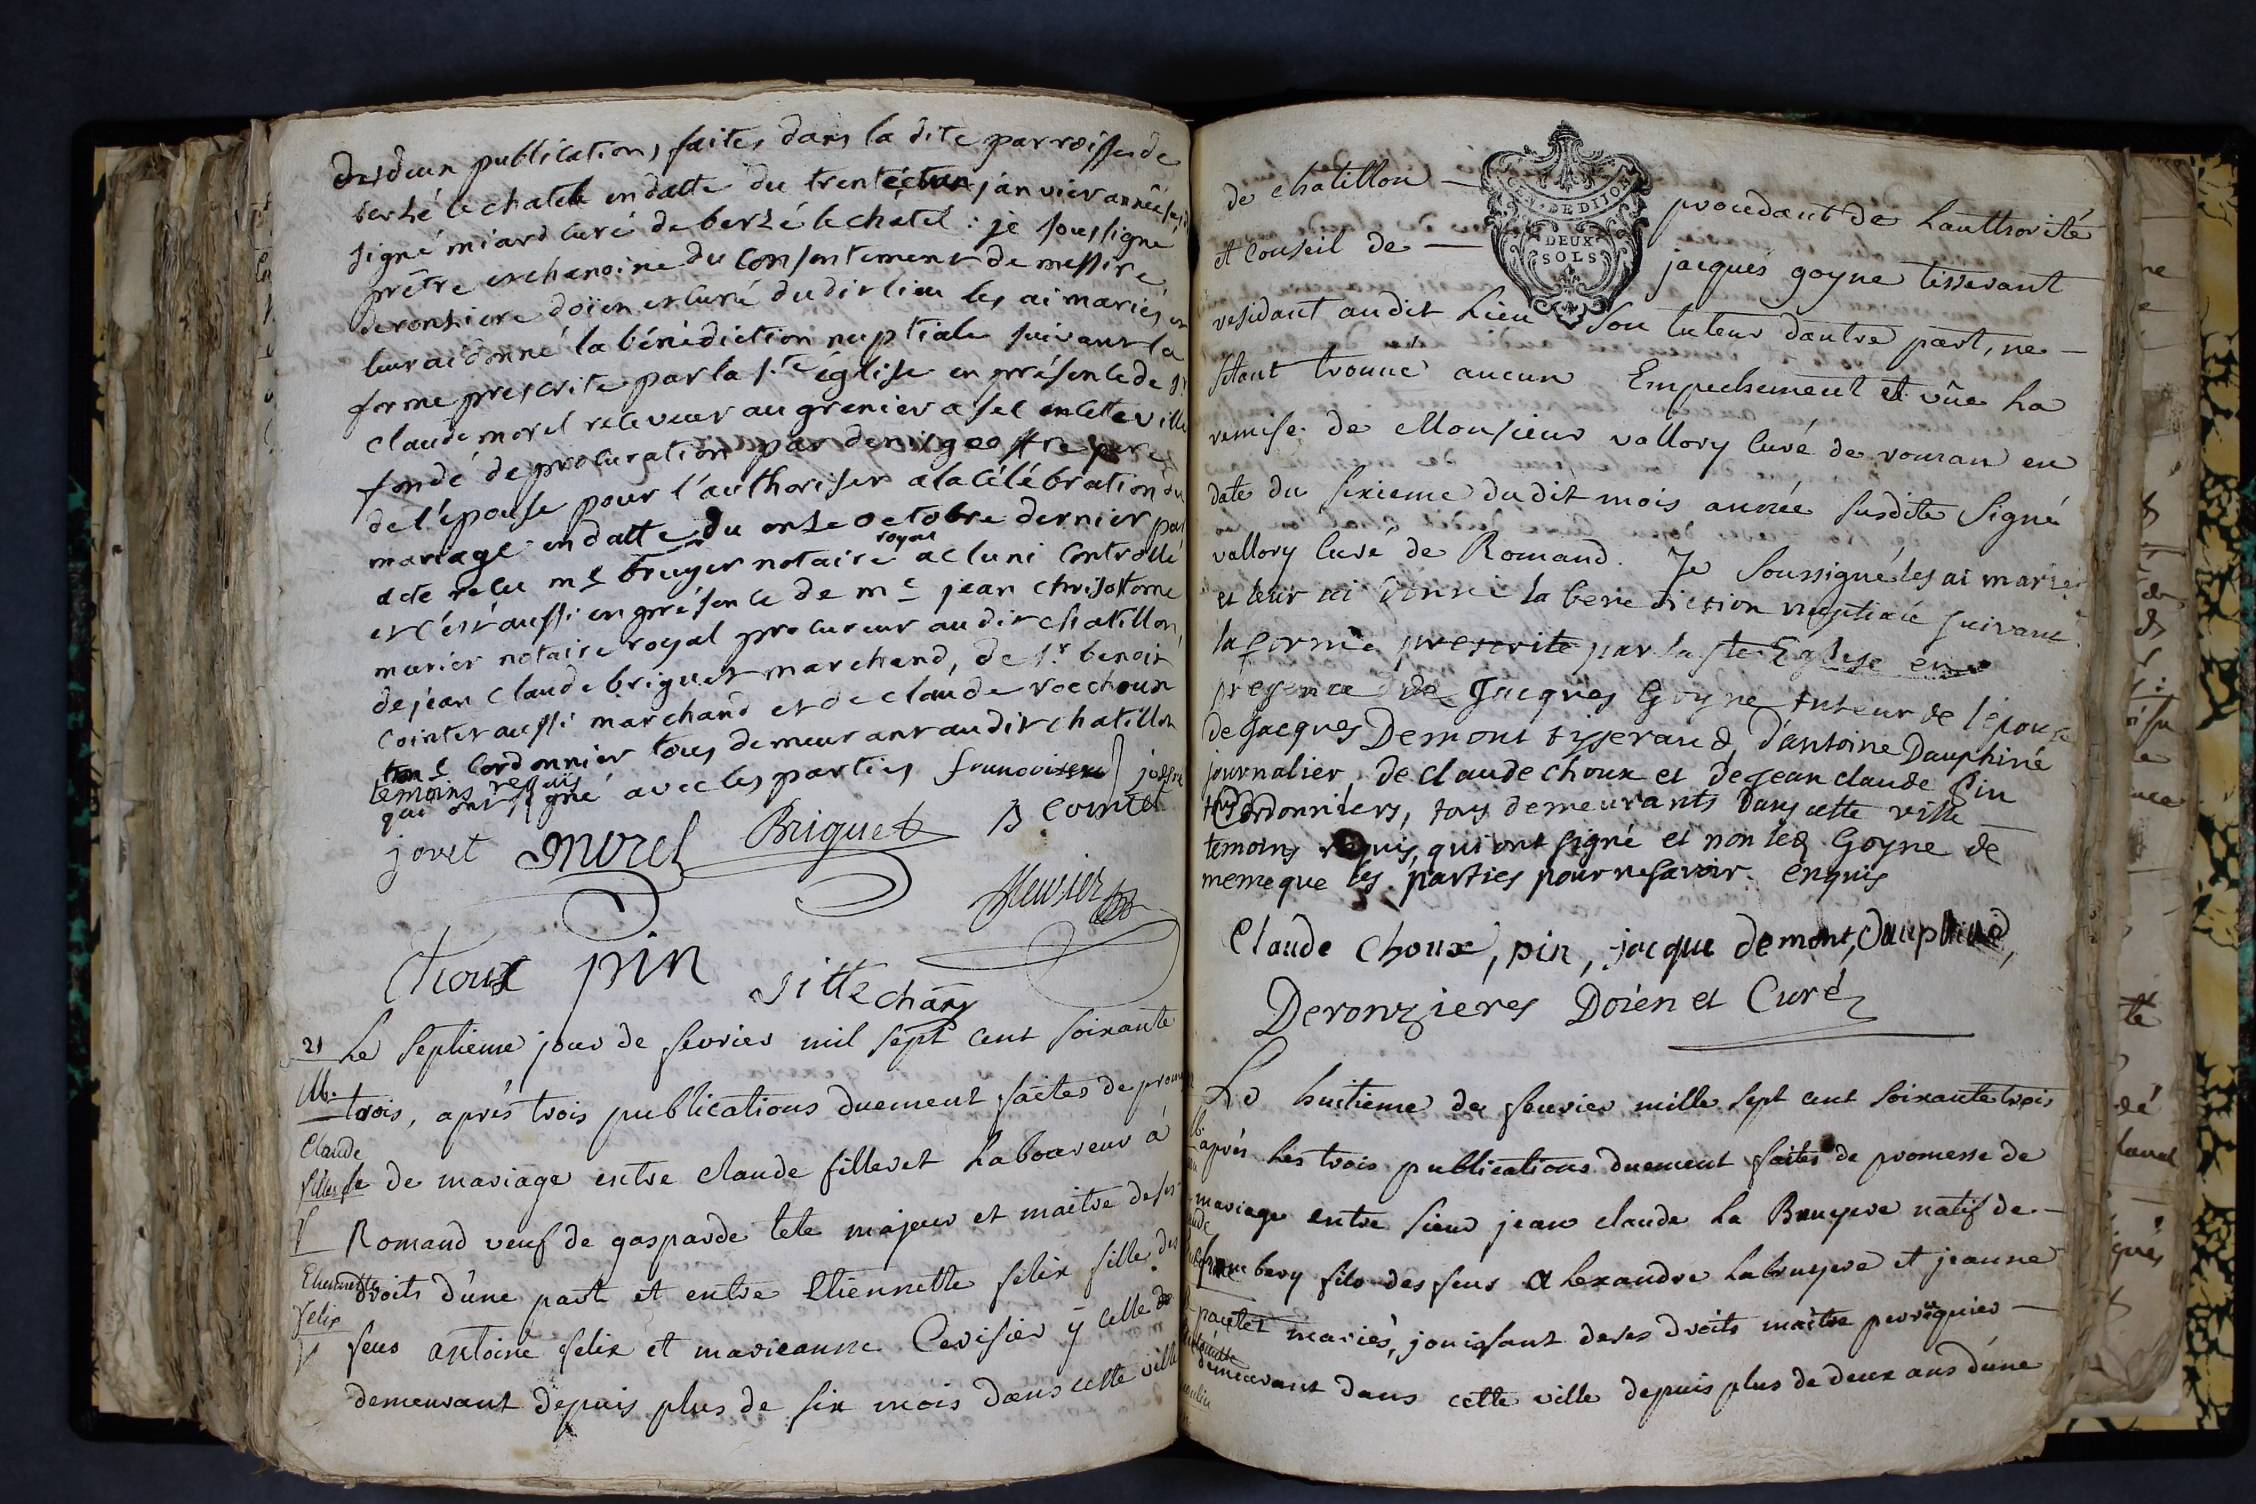 publications faites dans la dite parroisse de
berzé le chatel en datte du trente et un janvier année
signé miard curé de berzé le chatel : je soussigné
prêtre et chanoine du consentement de messire
deronziere doïen et curé dudit lieu les ai mariés et
leur ai donné la bénédiction nuptiale suivant la
forme prescrite par la s.te église en présence de
claude morel releveur au grenier a sel en cette ville
fondé de procuration par denis geoffre pere
de l'épouse pour l'authoriser a la célébration du
mariage en datte du onze octobre dernier par
royal
acte recu me bruyer notaire a cluni controllé
et c'est aussi en présence de me jean chrisostome
murier notaire royal procureur au dit chatillon,
de jean claude briguet marchand, de s.r benoit
cointet aussi marchand et de claude
cordonnier tous demeurant au dit chatillon
temoins requis
qui ont signé avec les parties
jovet morel Briguet B cointet
Choux pin
21 Le septieme jour de fevrier mil sept cent soixante
M. trois, après trois publications duement faites de prom
Claude
fillere se de mariage entre claude filleret Laboureur à
Romand veuf de gasparde tete majeur et maitre de ses
Etiennette droits d'une part et entre Etiennette felix fille des
felix feus antoine felix et marieanne Cerisier y celle
demeurant depuis plus de six mois dans cette ville
de chatillon — procedant de Lauthorité
GEN. DE DIJON
DEUX
SOLS
et conseil de — jacques goyne tisserant
residant audit Lieu son tuteur d'autre part, ne —
sétant trouvé aucun Empechement et vûe La
remise de Monsieur vallory curé de roman en
date du sixieme du dit mois année susdite Signé
vallory curé de Romand. Je Soussigné les ai mariés
et leur ai donné la benediction nuptiale suivant
la forme prescrite par la ste Eglise en
presence de Jacques Goyne tuteur de l'épouse
de Jacques Demont tisserand, d'antoine Dauphiné
journalier, de claude choux et de Jean claude Pin
Cordonniers, tous demeurants dans cette ville
temoins requis, qui ont signé et non led Goyne de
meme que les parties pour ne savoir enquis
Claude Choux, pin, jacque demont, dauphiné,
Deronzieres Doïen et Curé
Le huitieme de fevrier mille sept cent soixante trois
après les trois publications duement faites de promesse de
mariage entre sieur jean claude La Bruyere natif de —
bery fils des feus alexandre Labruyere et jeanne
mariés, jouissant de ses droits maitre perruquier —
demeurant dans cette ville depuis plus de deux ans d'une